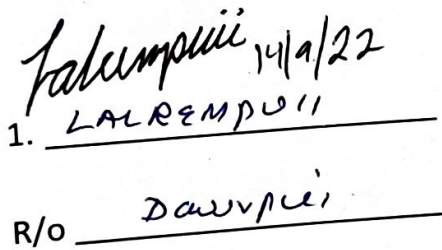 Lalrempuii 14/9/22
1. LALREMPUII
R/o Dawrpui